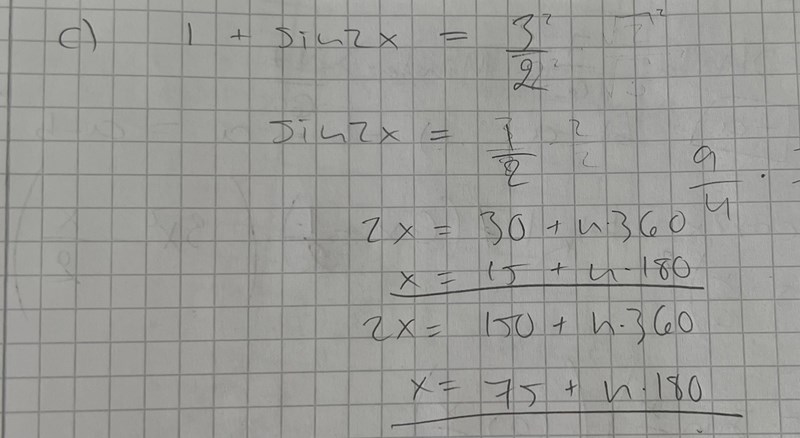 c) 1 + sin2x = 3/2
sin2x = 1/2
9/4 .
2x = 30 + n·360
x = 15 + n·180
2x = 150 + n·360
x = 75 + n·180